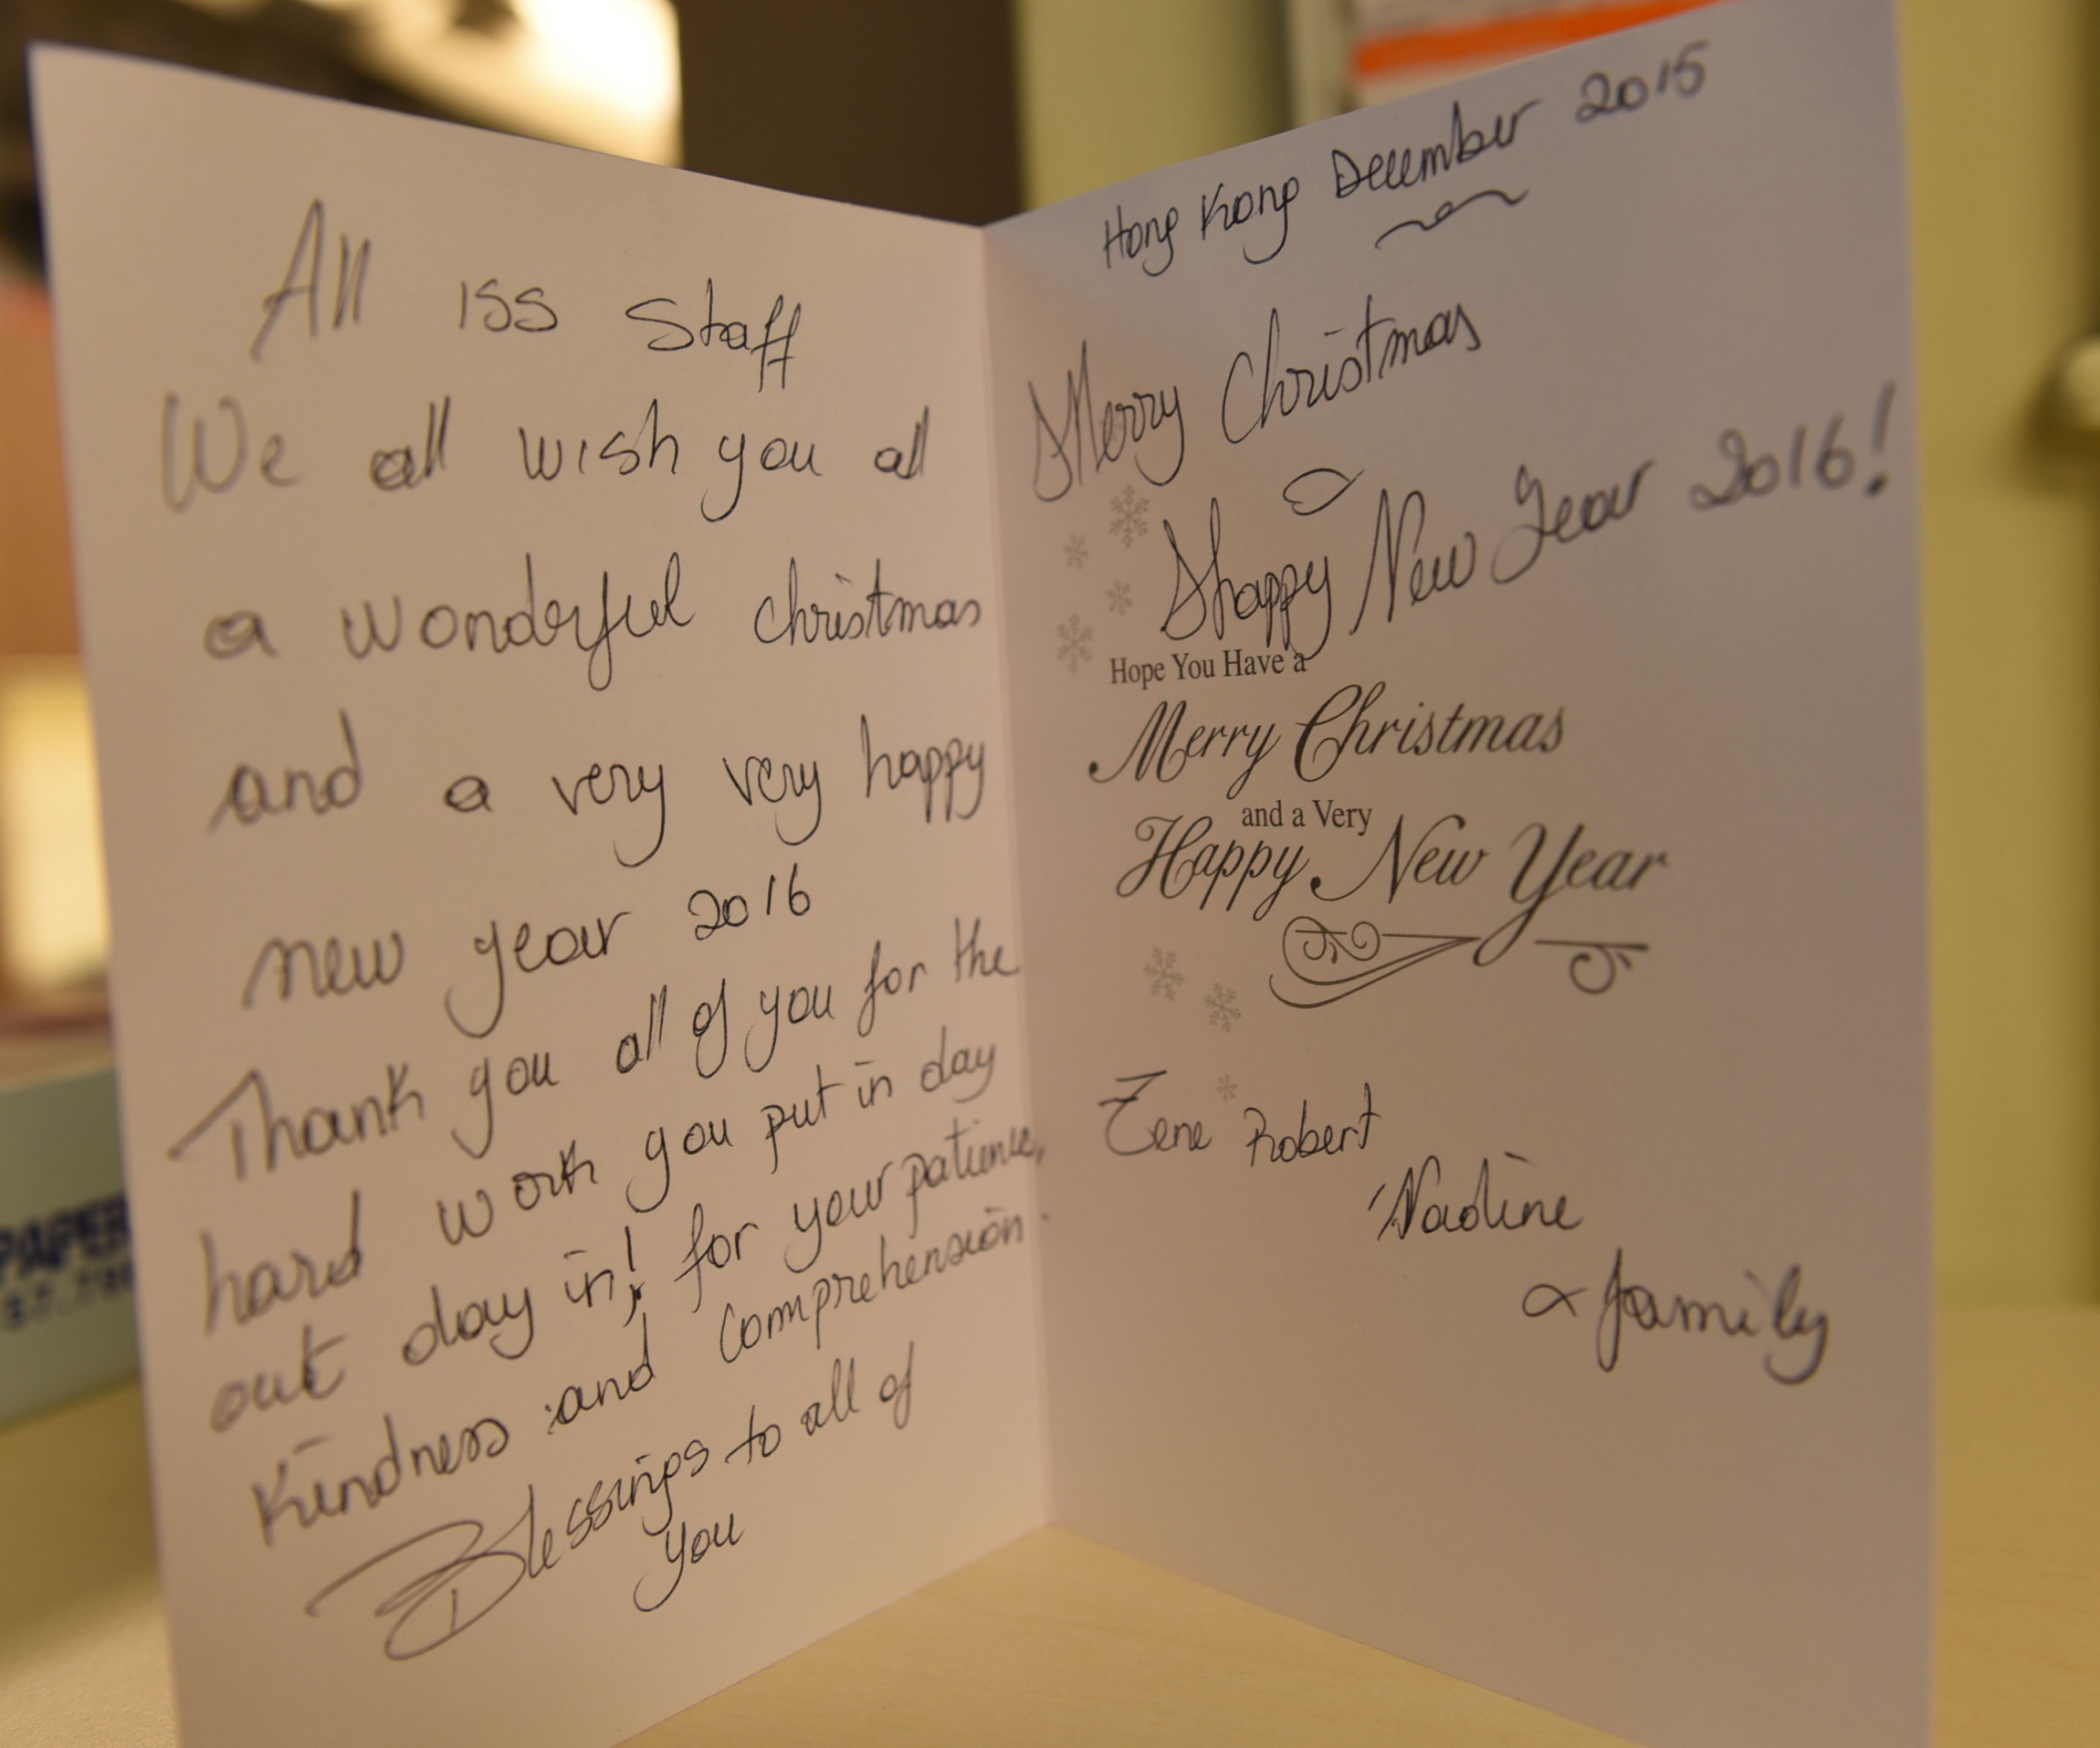 All ISS Staff
We all wish you all
a wonderful christmas
and a very very happy
new year 2016
Thank you all of you for the
hard work you put in day
out day in! for your patience,
Kindness and comprehension.
Blessings to all of
you
Hong Kong December 2015
Merry Christmas
&
Happy New Year 2016!
Hope You Have a
Merry Christmas
and a Very
Happy New Year
Robert
Nadine
& family
PAPER